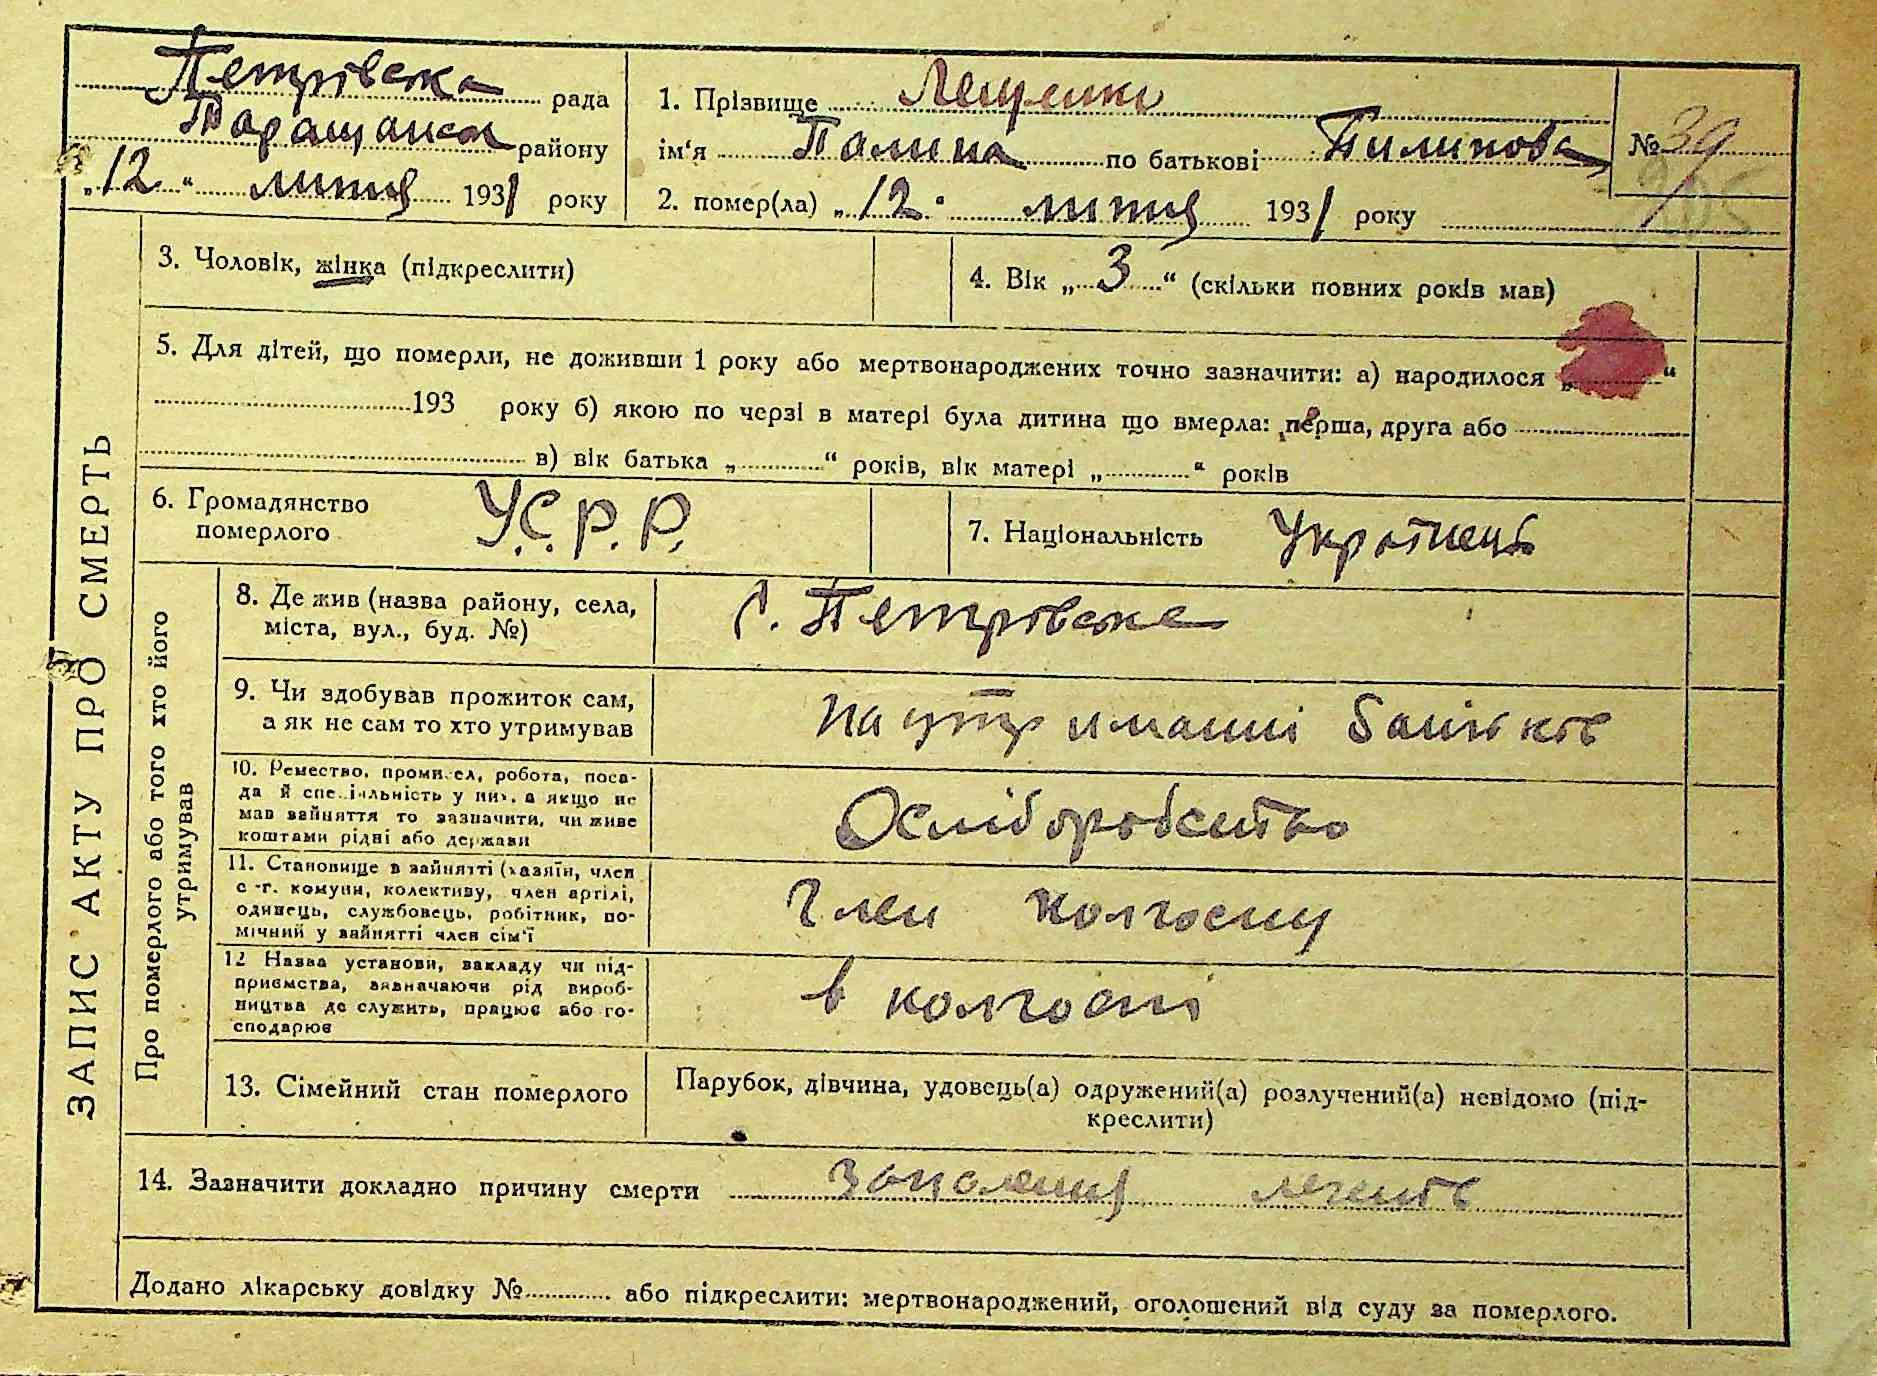 Петрівська рада
Таращанськ району
„12“ липня 1931 року
1. Прізвище Лещенко
ім‘я Палина по батькові Пилипова
№ 39
2. помер(ла) „12“ липня 1931 року
ЗАПИС АКТУ ПРО СМЕРТЬ
3. Чоловік, жінка (підкреслити)
4. Вік „3“ (скільки повних років мав)
5. Для дітей, що померли, не доживши 1 року або мертвонароджених точно зазначити: а) народилося „ “
193 року б) якою по черзі в матері була дитина що вмерла: перша, друга або
в) вік батька „ “ років, вік матері „ “ років
6. Громадянство
померлого
У.С.Р.Р.
7. Національність Українець
Про померлого або того хто його
утримував
8. Де жив (назва району, села,
міста, вул., буд. №)
с. Петрівське
9. Чи здобував прожиток сам,
а як не сам то хто утримував
на утриманні батьків
10. Ремество, промисел, робота, поса-
да й спеціяльність у них, а якщо не
мав зайняття то зазначити, чи живе
коштами рідні або держави
11. Становище в зайнятті (хазяїн, член
с.-г. комуни, колективу, член артілі,
одинець, службовець, робітник, по-
мічний у зайнятті член сім‘ї
Член колгоспу
12 Назва установи, закладу чи під-
приємства, зазначаючи рід вироб-
ництва де служить, працює або го-
сподарює
в колгоспі
13. Сімейний стан померлого
Парубок, дівчина, удовець(а) одружений(а) розлучений(а) невідомо (під-
креслити)
14. Зазначити докладно причину смерти запалення легенів
Додано лікарську довідку № або підкреслити: мертвонароджений, оголошений від суду за померлого.